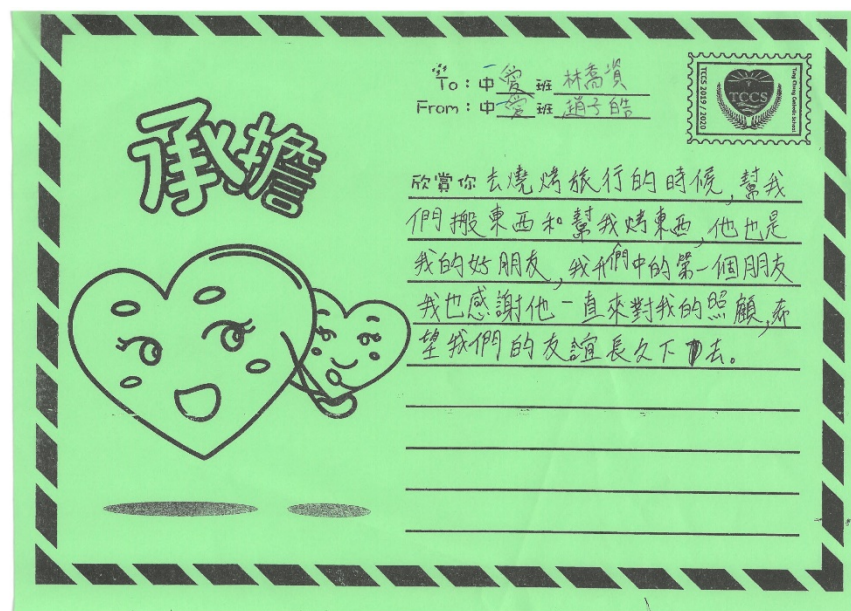 To：中一愛班 林喬湞
From：中一愛班 趙子皓
TCCS 2019 / 2020
TCCS
Tung Chung Catholic School
承擔
欣賞你去燒烤旅行的時候，幫我
們搬東西和幫我烤東西，他也是
我的好朋友，我升中的第一個朋友
我也感謝他一直來對我的照顧，希
望我們的友誼長久下去。